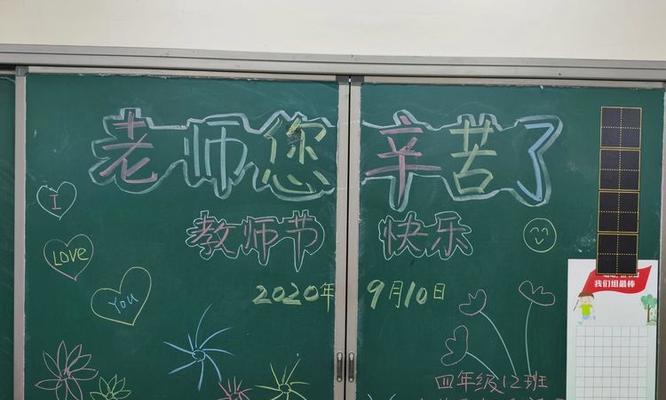 老师您辛苦了
教师节 快乐
I
LOVE
You
2020年 9月10日
我们组最棒
四年级12班